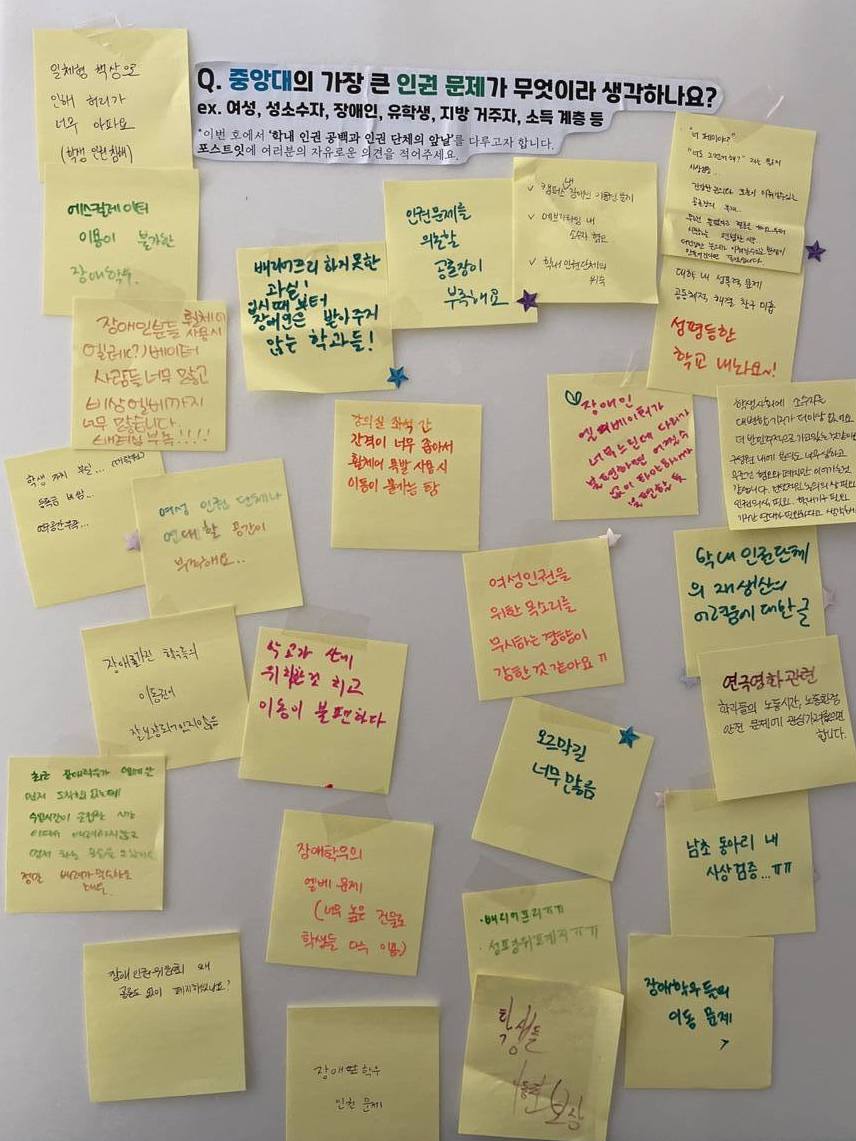 Q. 중앙대의 가장 큰 인권 문제가 무엇이라 생각하나요?
ex. 여성, 성소수자, 장애인, 유학생, 지방 거주자, 소득 계층 등
*이번 호에서 '학내 인권 공백과 인권 단체의 앞날'를 다루고자 합니다.
포스트잇에 여러분의 자유로운 의견을 적어주세요.
일체형 책상으로
인해 허리가
너무 아파요
(학생 인권침해)
에스컬레이터
이용이 불가한
장애학우.
배리어프리 하지 못한
과실!
입시 때부터
장애인은 받아주지
않는 학과들!
인권문제를
의논할
공론장이
부족해요
✓ 캠퍼스 내 장애인 이동권 문제
✓ 에브리타임 내
소수자 혐오
✓ 학내 인권단체의
위축
"너 페미야?"
대학 내 성폭력 문제
공동체적 해결 창구 미흡
성평등한
학교 내놔요~!
장애인분들 휠체어
사용시
엘레(?)베이터
사람들 너무 많고
비상엘베까지
너무 많습니다.
배려심 부족!!!!
강의실 좌석 간
간격이 너무 좁아서
휠체어 목발 사용 시
이동이 불가능함
장애인
엘리베이터가
너무 느린데 다리가
불편하면 어쩔 수
없이 타야하니까
불편할 듯
학생사회에 소수자를
대변할 기구가 더이상 없네요
등록금 내임...
여성 인권 단체나
연대할 공간이
부족해요..
여성인권을
위한 목소리를
무시하는 경향이
강한 것 같아요 ㅠ
학내 인권단체
의 재생산의
어려움에 대한 글
장애를 가진 학우들의
이동권이
잘 보장되어있지않음
학교가 산에
위치한 것 치고
이동이 불편하다
연극영화 관련
학과들의 노동시간, 노동환경
안전 문제에 관심 가져줬으면
합니다.
오르막길
너무 많음
최근 장애학우가 엘베 앞
먼저 도착해 있는데
남초 동아리 내
사상검증...ㅠㅠ
장애학우의
엘베 문제
(너무 높은 건물로
학생들 다수 이용)
·배리어프리ㅠㅠ
·성평위 폐지ㅠㅠ
장애인권위원회 왜
공론도 없이 폐지하였나요?
장애학우들의
이동 문제
학생들
이동권 보상
장애인 학우
인권 문제